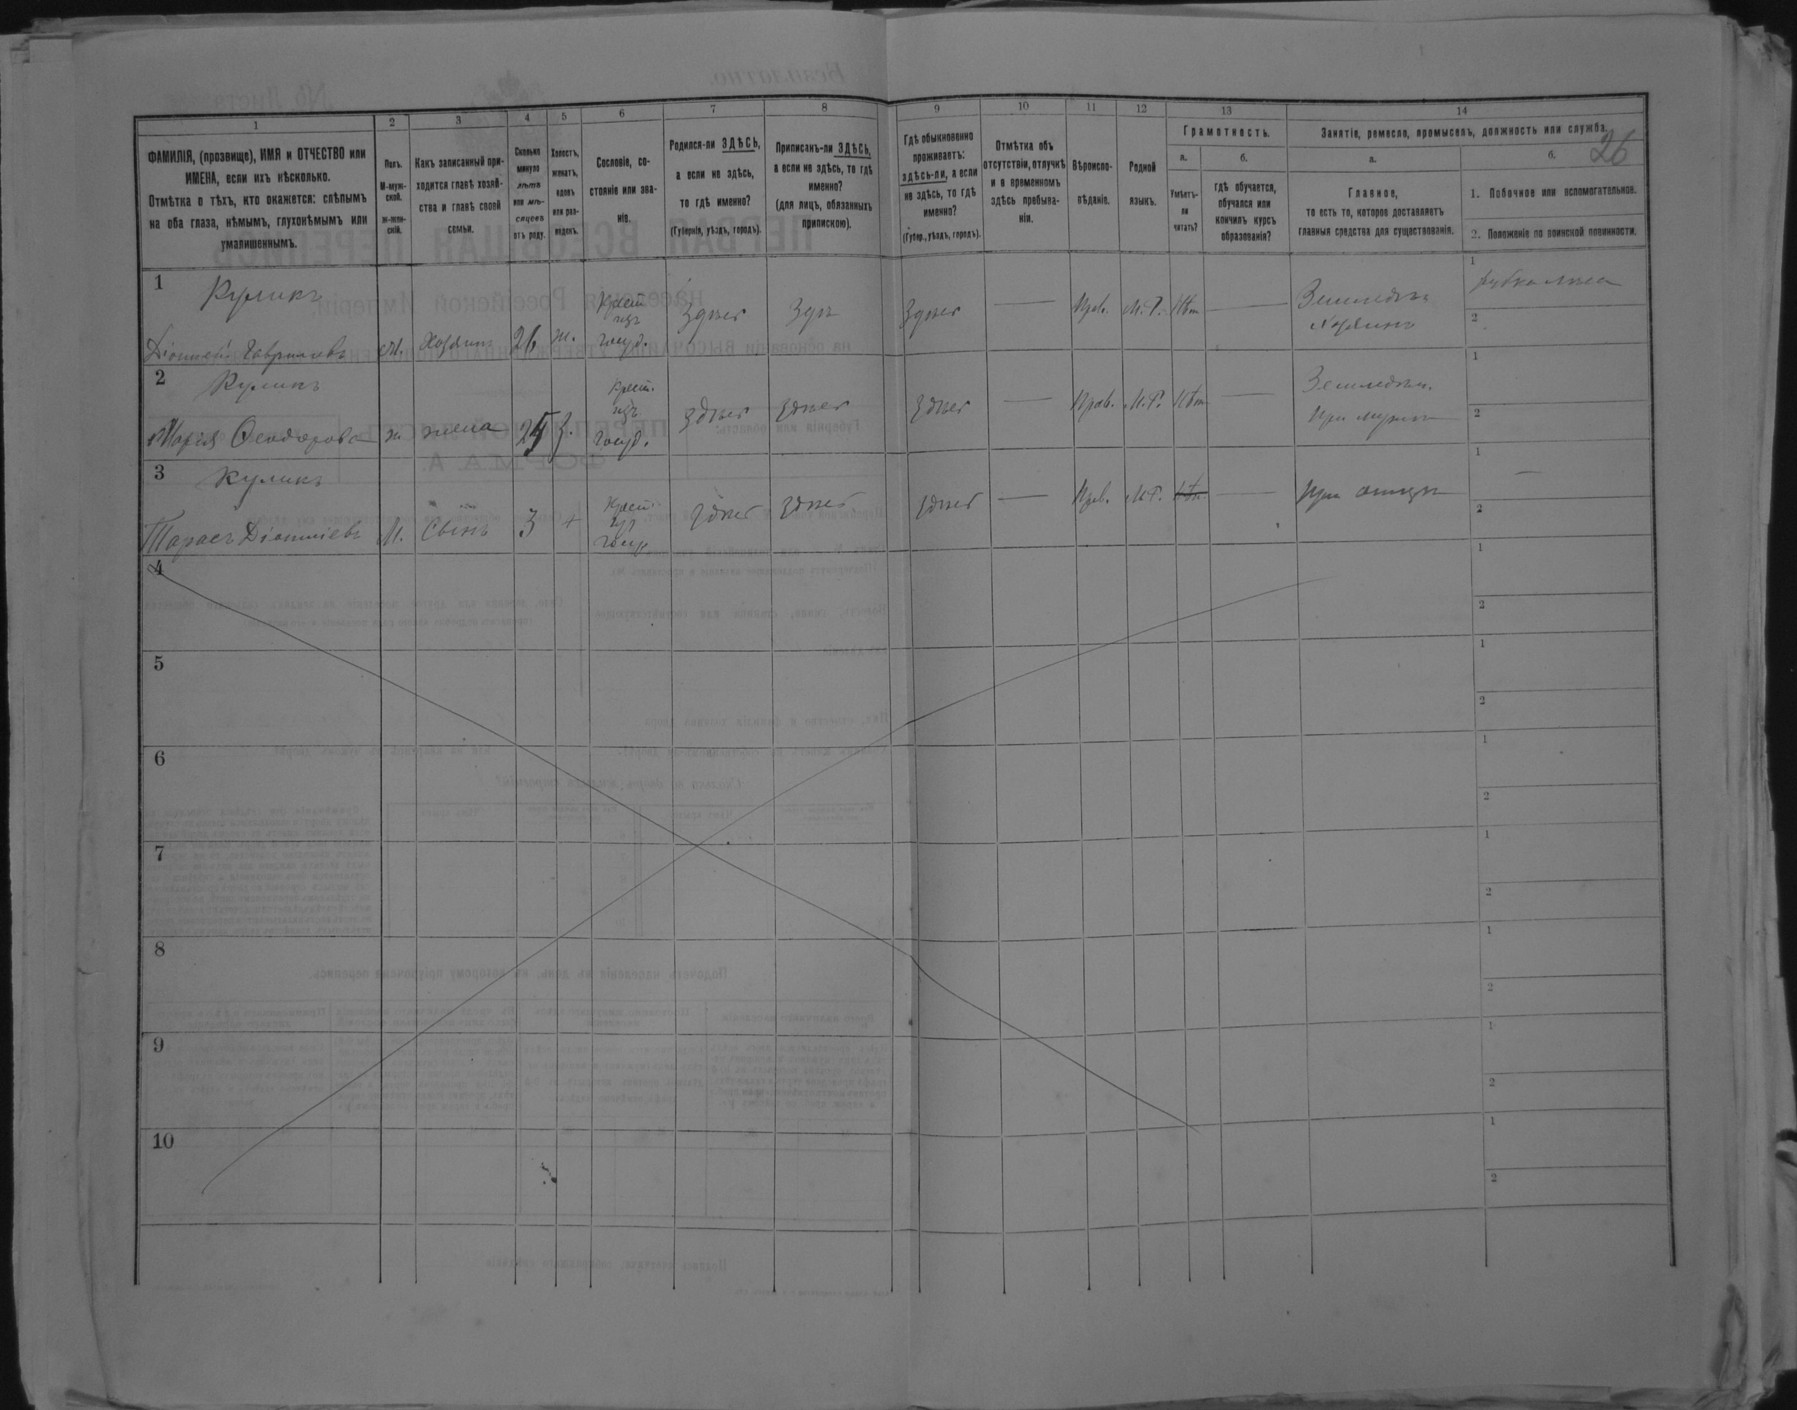 26
1 2 3 4 5 6 7 8 9 10 11 12 13 14
ФАМИЛІЯ, (прозвище), ИМЯ и ОТЧЕСТВО или
ИМЕНА, если ихъ нѣсколько.
Отмѣтка о тѣхъ, кто окажется: слѣпымъ
на оба глаза, нѣмымъ, глухонѣмымъ или
умалишеннымъ.
Полъ.
М-муж-
ской.
ж-жен-
скій.
Какъ записанный при-
ходится главѣ хозяй-
ства и главѣ своей
семьи.
Сколько
минуло
лѣтъ
или мѣ-
сяцевъ
отъ роду.
Холостъ,
женатъ,
вдовъ
или раз-
веденъ.
Сословіе, со-
стояніе или зва-
ніе.
Родился-ли ЗДѢСЬ,
а если не здѣсь,
то гдѣ именно?
(Губернія, уѣздъ, городъ).
Приписанъ-ли ЗДѢСЬ,
а если не здѣсь, то гдѣ
именно?
(для лицъ, обязанныхъ
припискою).
Гдѣ обыкновенно
проживаетъ:
здѣсь-ли, а если
не здѣсь, то гдѣ
именно?
(Губер., уѣздъ, городъ).
Отмѣтка объ
отсутствіи, отлучкѣ
и о временномъ
здѣсь пребыва-
ніи.
Вѣроиспо-
вѣданіе.
Родной
языкъ.
Грамотность.
а.
Умѣетъ-
ли
читать?
б.
гдѣ обучается,
обучался или
кончилъ курсъ
образованія?
Занятіе, ремесло, промыселъ, должность или служба.
а.
Главное,
то есть то, которое доставляетъ
главныя средства для существованія.
б.
1. Побочное или вспомогательное.
2. Положеніе по воинской повинности.
1 Куликъ
Гавриловъ М. Хозяинъ 26 ж. Крест. изъ госуд. Здѣсь Здѣсь Здѣсь — Прав. М.Р. Нѣт — Земледѣл. Хозяинъ
1
2
2 Куликъ
Марія Феодорова ж жена 25 З. Крест. изъ госуд. здѣсь здѣсь здѣсь — Прав. М.Р. Нѣт Земледѣл. при мужѣ
1
2
3 Куликъ
Тарасъ М. Сынъ 3 + Крест. изъ госуд. здѣсь здѣсь здѣсь — Прав. М.Р. Нѣт — при отцѣ
1 —
2
4
1
2
5
1
2
6
1
2
7
1
2
8
1
2
9
1
2
10
1
2